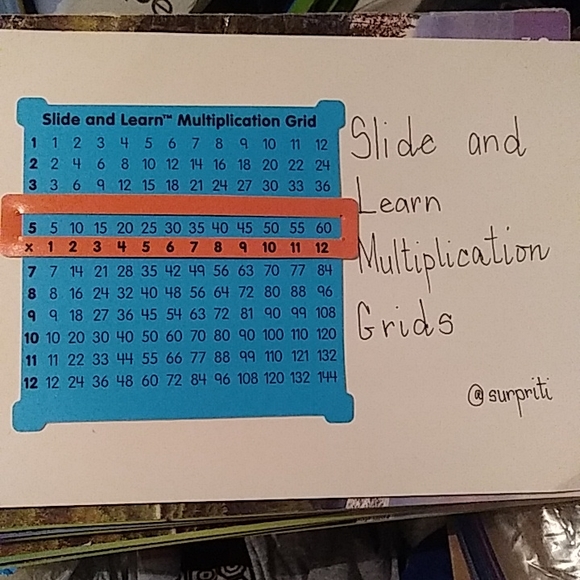 Slide and Learn™ Multiplication Grid
1 1 2 3 4 5 6 7 8 9 10 11 12
2 2 4 6 8 10 12 14 16 18 20 22 24
3 3 6 9 12 15 18 21 24 27 30 33 36
5 5 10 15 20 25 30 35 40 45 50 55 60
x 1 2 3 4 5 6 7 8 9 10 11 12
7 7 14 21 28 35 42 49 56 63 70 77 84
8 8 16 24 32 40 48 56 64 72 80 88 96
9 9 18 27 36 45 54 63 72 81 90 99 108
10 10 20 30 40 50 60 70 80 90 100 110 120
11 11 22 33 44 55 66 77 88 99 110 121 132
12 12 24 36 48 60 72 84 96 108 120 132 144
Slide and
Learn
Multiplication
Grids
@surpriti